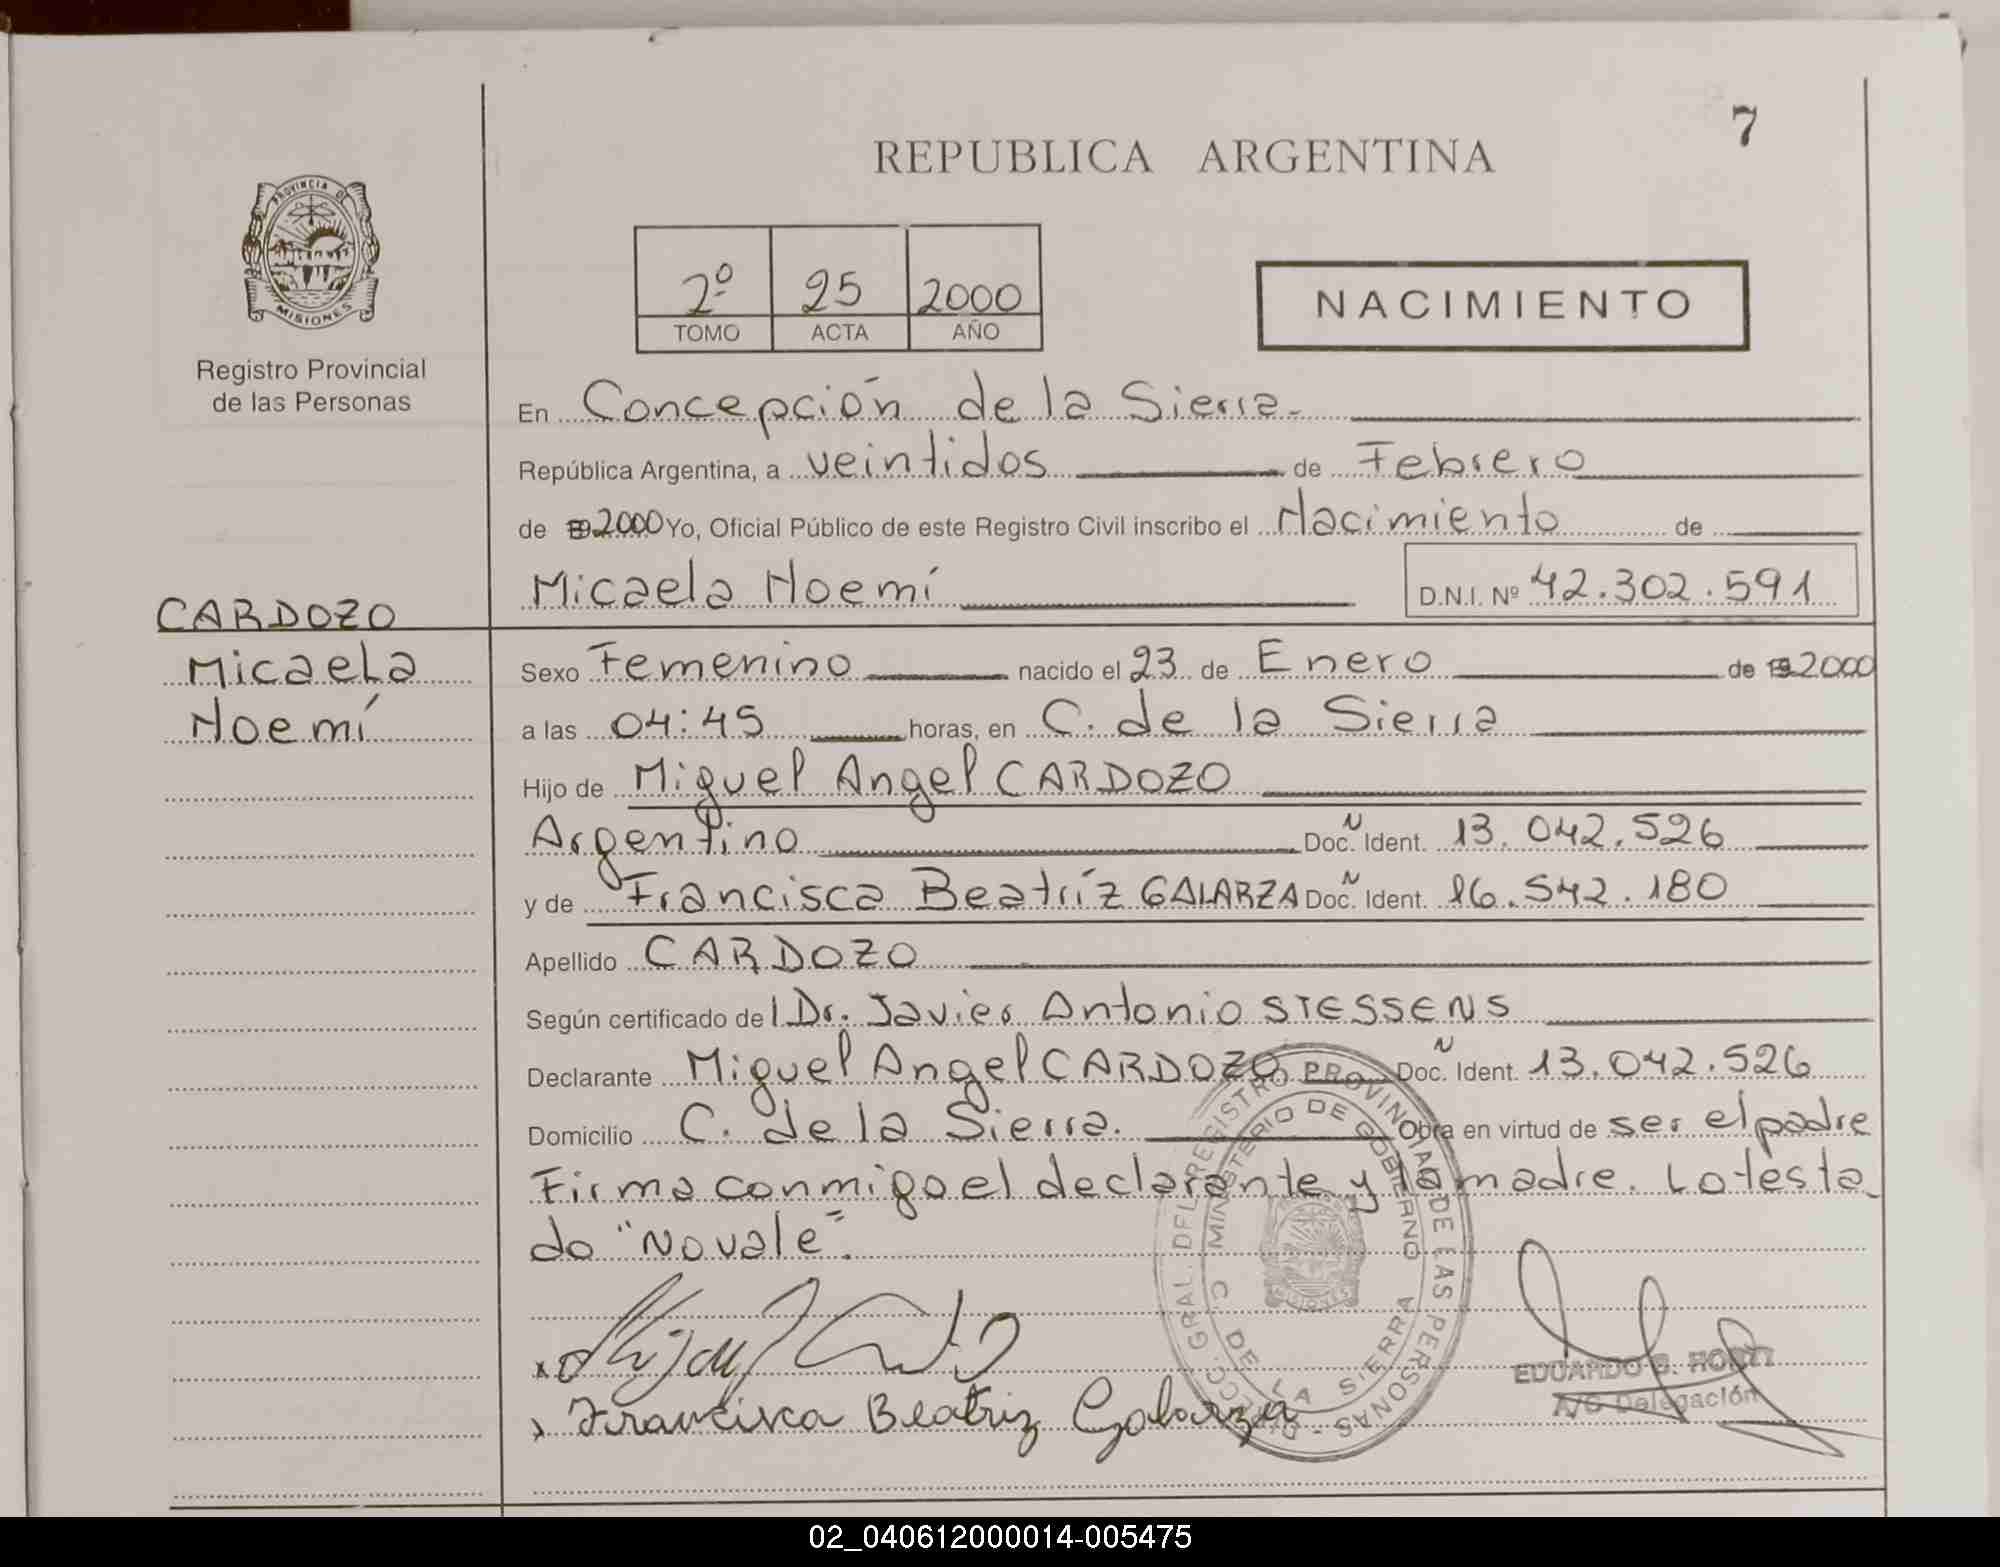 7
REPUBLICA ARGENTINA
PROVINCIA DE
MISIONES
Registro Provincial
de las Personas
2º 25 2000
TOMO ACTA AÑO
NACIMIENTO
En Concepción de la Sierra.
República Argentina, a veintidos de Febrero
de 19 2000 Yo, Oficial Público de este Registro Civil inscribo el Nacimiento de
Micaela Noemí D.N.I. Nº 42.302.591
CARDOZO
Micaela
Noemí
Sexo Femenino nacido el 23 de Enero de 19 2000
a las 04:45 horas, en C. de la Sierra
Hijo de Miguel Angel CARDOZO
Argentino Doc. N Ident. 13.042.526
y de Francisca Beatríz GALARZA Doc. N Ident. 16.542.180
Apellido CARDOZO
Según certificado del Dr. Javier Antonio STESSENS
Declarante Miguel Angel CARDOZO Doc. N Ident. 13.042.526
Domicilio C. de la Sierra. Obra en virtud de ser el padre
Firma conmigo el declarante y la madre. Lo testa
do "No vale".
DIRECC. GRAL. DEL REGISTRO PROVINCIAL DE LAS PERSONAS -
MINISTERIO DE GOBIERNO
C. DE LA SIERRA
MISIONES
x Francisca Beatriz Galarza
EDUARDO
A/C Delegación
02_040612000014-005475